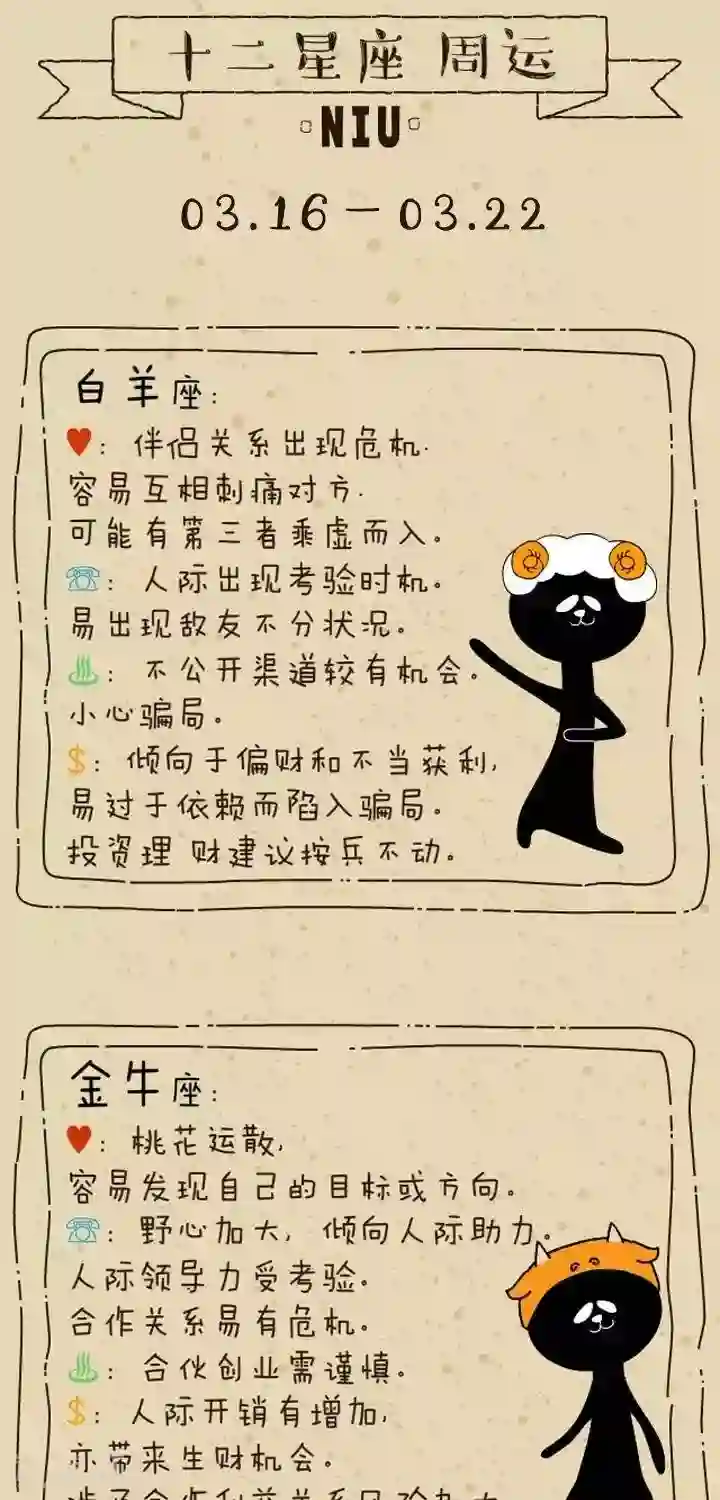 十二星座 周运
NIU
03.16－03.22
白羊座:
♥: 伴侣关系出现危机.
容易互相刺痛对方.
可能有第三者乘虚而入。
☏: 人际出现考验时机。
易出现敌友不分状况。
♨: 不公开渠道较有机会。
小心骗局。
$: 倾向于偏财和不当获利,
易过于依赖而陷入骗局。
投资理 财建议按兵不动。
金牛座:
♥: 桃花运散,
容易发现自己的目标或方向。
☏: 野心加大, 倾向人际助力。
人际领导力受考验。
合作关系易有危机。
♨: 合伙创业需谨慎。
$: 人际开销有增加,
亦带来生财机会。